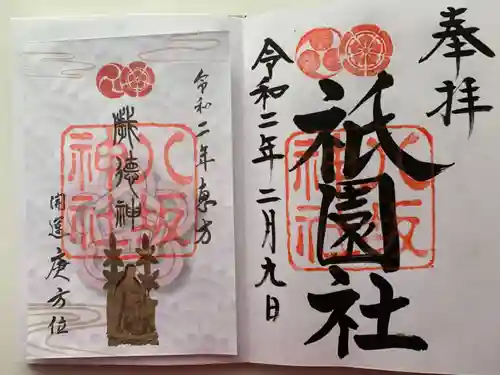 奉拝
祇園社
八坂神社
令和二年二月九日
令和二年恵方
歳徳神
八坂神社
開運庚方位